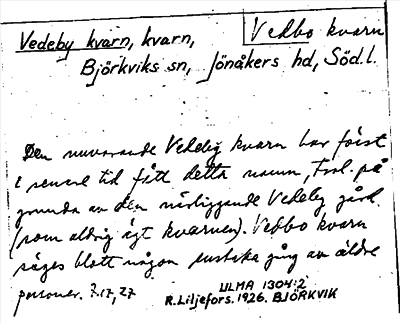 Vedbo kvarn
Vedeby kvarn, kvarn,
Björkviks sn, Jönåkers hd, Söd.l.
Den nuvarande Vedeby kvarn har först
i senare tid fått detta namn, trol. på
grund av den närliggande Vedeby gård
(som aldrig ägt kvarnen). Vedbo kvarn
säges blott någon enstaka gång av äldre
personer. 7.17,27
ULMA 1304:2
R.Liljefors. 1926. BJÖRKVIK